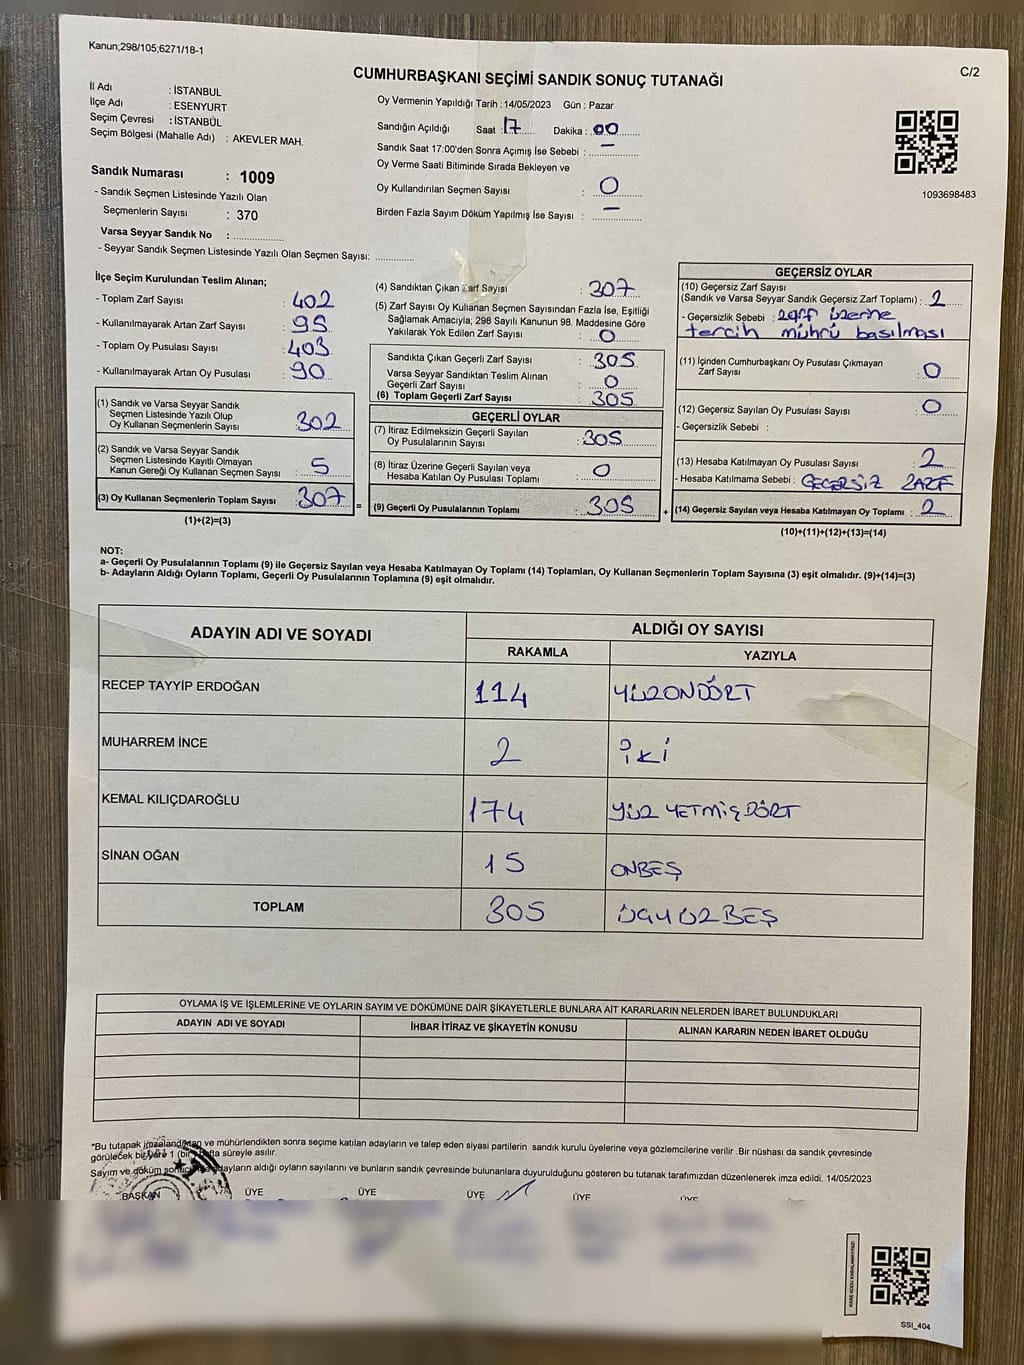 Kanun;298/105;6271/18-1
C/2
CUMHURBAŞKANI SEÇİMİ SANDIK SONUÇ TUTANAĞI
İl Adı : İSTANBUL
İlçe Adı : ESENYURT
Seçim Çevresi : İSTANBUL
Seçim Bölgesi (Mahalle Adı) : AKEVLER MAH.
Sandık Numarası : 1009
- Sandık Seçmen Listesinde Yazılı Olan
Seçmenlerin Sayısı : 370
Varsa Seyyar Sandık No : ................
- Seyyar Sandık Seçmen Listesinde Yazılı Olan Seçmen Sayısı: ............
Oy Vermenin Yapıldığı Tarih : 14/05/2023 Gün : Pazar
Sandığın Açıldığı Saat : 17 Dakika : 00
Sandık Saat 17:00'den Sonra Açımış İse Sebebi : —
Oy Verme Saati Bitiminde Sırada Bekleyen ve
Oy Kullandırılan Seçmen Sayısı : 0
Birden Fazla Sayım Döküm Yapılmış İse Sayısı : —
1093698483
İlçe Seçim Kurulundan Teslim Alınan;
- Toplam Zarf Sayısı : 402
- Kullanılmayarak Artan Zarf Sayısı : 95
- Toplam Oy Pusulası Sayısı : 403
- Kullanılmayarak Artan Oy Pusulası : 90
(1) Sandık ve Varsa Seyyar Sandık
Seçmen Listesinde Yazılı Olup
Oy Kullanan Seçmenlerin Sayısı : 302
(2) Sandık ve Varsa Seyyar Sandık
Seçmen Listesinde Kayıtlı Olmayan
Kanun Gereği Oy Kullanan Seçmen Sayısı : 5
(3) Oy Kullanan Seçmenlerin Toplam Sayısı : 307
(1)+(2)=(3)
(4) Sandıktan Çıkan Zarf Sayısı : 307
(5) Zarf Sayısı Oy Kullanan Seçmen Sayısından Fazla İse, Eşitliği
Sağlamak Amacıyla; 298 Sayılı Kanunun 98. Maddesine Göre
Yakılarak Yok Edilen Zarf Sayısı : 0
Sandıkta Çıkan Geçerli Zarf Sayısı : 305
Varsa Seyyar Sandıktan Teslim Alınan
Geçerli Zarf Sayısı : 0
(6) Toplam Geçerli Zarf Sayısı : 305
GEÇERLİ OYLAR
(7) İtiraz Edilmeksizin Geçerli Sayılan
Oy Pusulalarının Sayısı : 305
(8) İtiraz Üzerine Geçerli Sayılan veya
Hesaba Katılan Oy Pusulası Toplamı : 0
= (9) Geçerli Oy Pusulalarının Toplamı : 305
GEÇERSİZ OYLAR
(10) Geçersiz Zarf Sayısı
(Sandık ve Varsa Seyyar Sandık Geçersiz Zarf Toplamı) : 2
- Geçersizlik Sebebi : zarf üzerine
tercih mührü basılması
(11) İçinden Cumhurbaşkanı Oy Pusulası Çıkmayan
Zarf Sayısı : 0
(12) Geçersiz Sayılan Oy Pusulası Sayısı : 0
- Geçersizlik Sebebi :
(13) Hesaba Katılmayan Oy Pusulası Sayısı : 2
- Hesaba Katılmama Sebebi : GEÇERSİZ ZARF
+ (14) Geçersiz Sayılan veya Hesaba Katılmayan Oy Toplamı : 2
(10)+(11)+(12)+(13)=(14)
NOT:
a- Geçerli Oy Pusulalarının Toplamı (9) ile Geçersiz Sayılan veya Hesaba Katılmayan Oy Toplamı (14) Toplamları, Oy Kullanan Seçmenlerin Toplam Sayısına (3) eşit olmalıdır. (9)+(14)=(3)
b- Adayların Aldığı Oyların Toplamı, Geçerli Oy Pusulalarının Toplamına (9) eşit olmalıdır.
ADAYIN ADI VE SOYADI ALDIĞI OY SAYISI
RAKAMLA YAZIYLA
RECEP TAYYİP ERDOĞAN 114 YÜZONDÖRT
MUHARREM İNCE 2 İKİ
KEMAL KILIÇDAROĞLU 174 YÜZ YETMİŞDÖRT
SİNAN OĞAN 15 ONBEŞ
TOPLAM 305 ÜÇYÜZBEŞ
OYLAMA İŞ VE İŞLEMLERİNE VE OYLARIN SAYIM VE DÖKÜMÜNE DAİR ŞİKAYETLERLE BUNLARA AİT KARARLARIN NELERDEN İBARET BULUNDUKLARI
ADAYIN ADI VE SOYADI İHBAR İTİRAZ VE ŞİKAYETİN KONUSU ALINAN KARARIN NEDEN İBARET OLDUĞU
*Bu tutanak imzalandıktan ve mühürlendikten sonra seçime katılan adayların ve talep eden siyasi partilerin sandık kurulu üyelerine veya gözlemcilerine verilir .Bir nüshası da sandık çevresinde
görülecek bir yere 1 (bir) hafta süreyle asılır.
Sayım ve döküm adayların aldığı oyların sayılarını ve bunların sandık çevresinde bulunanlara duyurulduğunu gösteren bu tutanak tarafımızdan düzenlenerek imza edildi. 14/05/2023
BAŞKAN ÜYE ÜYE ÜYE ÜYE ÜYE
SSI_404